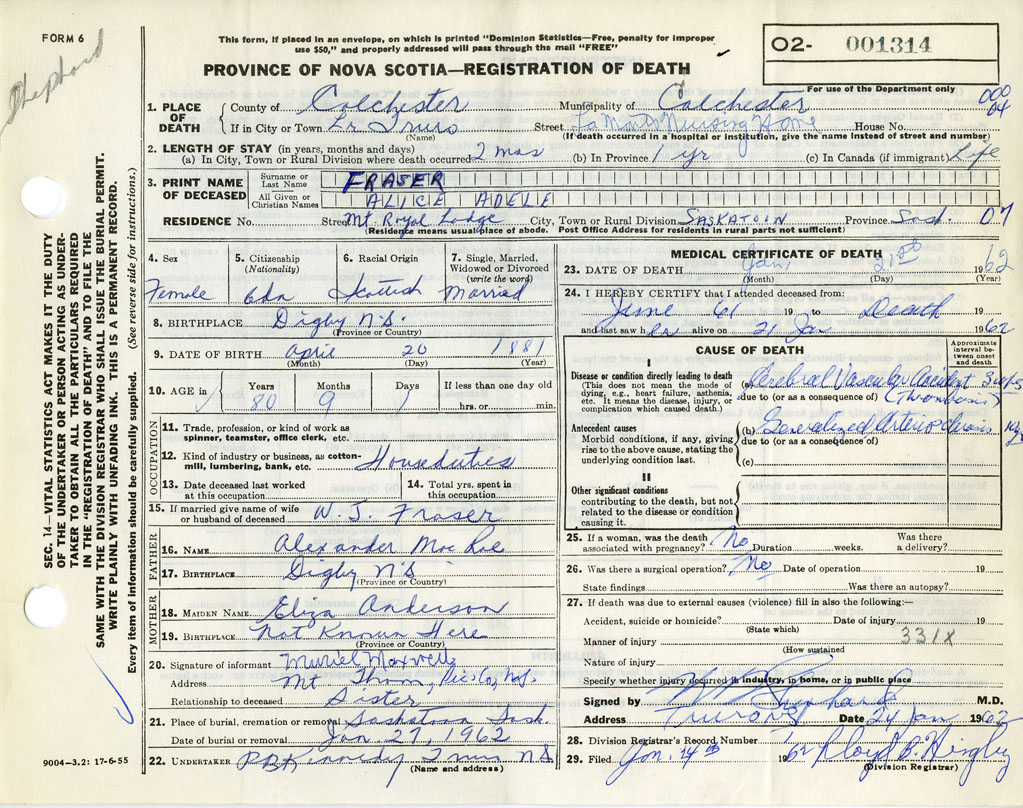 FORM 6
Shephard
This form, if placed in an envelope, on which is printed "Dominion Statistics—Free, penalty for improper
use $50," and properly addressed will pass through the mail "FREE"
PROVINCE OF NOVA SCOTIA—REGISTRATION OF DEATH
O2- 001314
For use of the Department only
000
04
1. PLACE OF DEATH County of Colchester Municipality of Colchester
If in City or Town Lr Truro Street Nursing Home House No.
(Name) (If death occurred in a hospital or institution, give the name instead of street and number)
2. LENGTH OF STAY (in years, months and days)
(a) In City, Town or Rural Division where death occurred 2 mos (b) In Province 1 yr (c) In Canada (if immigrant) Life
3. PRINT NAME OF DECEASED Surname or Last Name FRASER
All Given or Christian Names ALICE ADELE
RESIDENCE No. Street Mt. Royal Lodge City, Town or Rural Division SASKATOON Province Sask. 07
(Residence means usual place of abode. Post Office Address for residents in rural parts not sufficient)
4. Sex 5. Citizenship (Nationality) 6. Racial Origin 7. Single, Married, Widowed or Divorced (write the word)
Female Cdn Scottish Married
8. BIRTHPLACE Digby N.S.
(Province or Country)
9. DATE OF BIRTH April 20 1881
(Month) (Day) (Year)
10. AGE in Years Months Days If less than one day old
80 9 1 hrs. or min.
OCCUPATION
11. Trade, profession, or kind of work as spinner, teamster, office clerk, etc.
12. Kind of industry or business, as cotton-mill, lumbering, bank, etc. Houseduties
13. Date deceased last worked at this occupation 14. Total yrs. spent in this occupation
15. If married give name of wife or husband of deceased W. J. Fraser
FATHER
16. NAME Alexander
17. BIRTHPLACE Digby N.S
(Province or Country)
MOTHER
18. MAIDEN NAME Eliza Anderson
19. BIRTHPLACE Not Known Here
(Province or Country)
20. Signature of informant Muriel Maxwell
Address Mt Thom, Pic. Co, N.S.
Relationship to deceased Sister
21. Place of burial, cremation or removal Saskatoon Sask.
Date of burial or removal Jan. 27, 1962
22. UNDERTAKER Kennedy Truro N.S
(Name and address)
9004-3.2: 17-6-55
MEDICAL CERTIFICATE OF DEATH
23. DATE OF DEATH Jan. 21st 1962
(Month) (Day) (Year)
24. I HEREBY CERTIFY that I attended deceased from:
June 61 19 to Death 19
and last saw her alive on 21 Jan 1962
CAUSE OF DEATH
Approximate interval between onset and death
I
Disease or condition directly leading to death
(This does not mean the mode of dying, e.g., heart failure, asthenia, etc. It means the disease, injury, or complication which caused death.)
(a) Cerebral Vascular Accident
due to (or as a consequence of)
Antecedent causes
Morbid conditions, if any, giving rise to the above cause, stating the underlying condition last.
(b) Generalized Arteriosclerosis
due to (or as a consequence of)
(c)
II
Other significant conditions
contributing to the death, but not related to the disease or condition causing it.
25. If a woman, was the death associated with pregnancy? No Duration weeks. Was there a delivery?
26. Was there a surgical operation? No Date of operation 19
State findings Was there an autopsy?
27. If death was due to external causes (violence) fill in also the following:—
Accident, suicide or homicide? Date of injury 19
(State which)
Manner of injury 331X
(How sustained
Nature of injury
Specify whether injury occurred in industry, in home, or in public place
Signed by Shephard M.D.
Address Truro N.S Date 24 Jan 1962
28. Division Registrar's Record, Number
29. Filed Jan.
(Division Registrar)
SEC. 14—VITAL STATISTICS ACT MAKES IT THE DUTY
OF THE UNDERTAKER OR PERSON ACTING AS UNDER-
TAKER TO OBTAIN ALL THE PARTICULARS REQUIRED
IN THE "REGISTRATION OF DEATH" AND TO FILE THE
SAME WITH THE DIVISION REGISTRAR WHO SHALL ISSUE THE BURIAL PERMIT.
WRITE PLAINLY WITH UNFADING INK. THIS IS A PERMANENT RECORD.
Every item of Information should be carefully supplied. (See reverse side for instructions.)